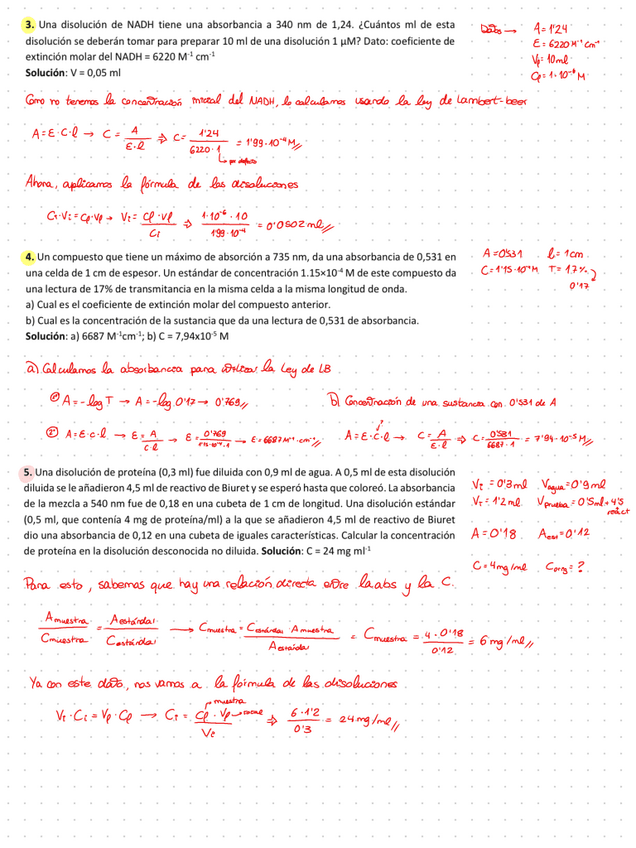 3. Una disolución de NADH tiene una absorbancia a 340 nm de 1,24. ¿Cuántos ml de esta
disolución se deberán tomar para preparar 10 ml de una disolución 1 µM? Dato: coeficiente de
extinción molar del NADH = 6220 M⁻¹ cm⁻¹
Solución: V = 0,05 ml
Datos → A = 1'24
E = 6220 M⁻¹ cm⁻¹
Vf = 10ml
Cf = 1·10⁻⁶ M
Como no tenemos la concentración inicial del NADH, lo calculamos usando la ley de Lambert-beer
A = E·C·l → C = A / E·l ⇒ C = 1'24 / 6220·1 = 1'99·10⁻⁴ M //
Ahora, aplicamos la fórmula de las disoluciones
Ci·Vi = Cf·Vf → Vi = Cf·Vf / Ci ⇒ 1·10⁻⁶·10 / 1'99·10⁻⁴ = 0'0502 ml //
4. Un compuesto que tiene un máximo de absorción a 735 nm, da una absorbancia de 0,531 en
una celda de 1 cm de espesor. Un estándar de concentración 1.15×10⁻⁴ M de este compuesto da
una lectura de 17% de transmitancia en la misma celda a la misma longitud de onda.
a) Cual es el coeficiente de extinción molar del compuesto anterior.
b) Cual es la concentración de la sustancia que da una lectura de 0,531 de absorbancia.
Solución: a) 6687 M⁻¹cm⁻¹; b) C = 7,94x10⁻⁵ M
A = 0'531 l = 1cm
C = 1'15·10⁻⁴ M T = 17%
0'17
a) Calculamos la absorbancia para utilizar la Ley de LB
1º A = -log T → A = -log 0'17 → 0'769 //
2º A = E·C·l → E = A / C·l → E = 0'769 / 1'15·10⁻⁴·1 → E = 6687 M⁻¹·cm⁻¹ //
b) Concentración de una sustancia con 0'531 de A
A = E·C·l → C = A / E·l ⇒ C = 0'531 / 6687·1 = 7'94·10⁻⁵ M //
5. Una disolución de proteína (0,3 ml) fue diluida con 0,9 ml de agua. A 0,5 ml de esta disolución
diluida se le añadieron 4,5 ml de reactivo de Biuret y se esperó hasta que coloreó. La absorbancia
de la mezcla a 540 nm fue de 0,18 en una cubeta de 1 cm de longitud. Una disolución estándar
(0,5 ml, que contenía 4 mg de proteína/ml) a la que se añadieron 4,5 ml de reactivo de Biuret
dio una absorbancia de 0,12 en una cubeta de iguales características. Calcular la concentración
de proteína en la disolución desconocida no diluida. Solución: C = 24 mg ml⁻¹
Vi = 0'3ml Vagua = 0'9ml
VT = 1'2ml Vprueba = 0'5ml + 4'5 react
A = 0'18 Aest = 0'12
C = 4mg/ml Corig = ?
Para esto, sabemos que hay una relación directa entre la abs y la C.
Amuestra / Cmuestra = Aestándar / Cestándar → Cmuestra = Cestándar · Amuestra / Aestándar = Cmuestra = 4·0'18 / 0'12 = 6 mg/ml //
Ya con este dato, nos vamos a la fórmula de las disoluciones
Vi·Ci = Vf·Cf → Ci = Cf·Vf / Vi ⇒ 6·1'2 / 0'3 = 24 mg/ml //
muestra